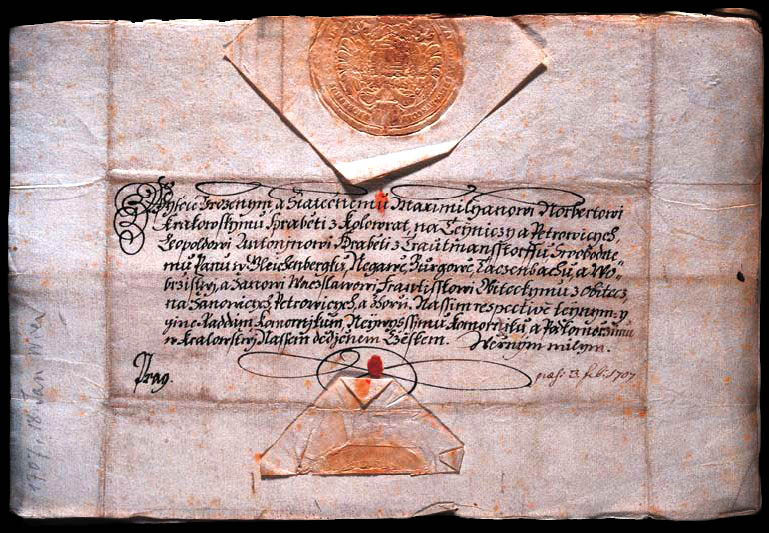 Wysoce Urozenym, a Statecnemu Maximilyanowi Norbertowi
Krakowskymu Hraběti z Kolowrat, na Teyniczy a Petrowicych,
Leopoldowi Antonjnowi Hraběti z Trautmansstorffu Swobodne-
mu Panu w Bleichenbergku, Negawě, Burgowě, Taczenbachu, a Wo-
a Janowi Waczslawowi Frantisskowi Obiteckymu z Obitecz,
na Janowiczych Petrowicych, a Zboru. Nassim respective teynym, y
gine Raddam Komornjkum, Neywyssymu
w Kralowstwj Nassem dědičnem Czeskem. Wernym milym.
Prag.
praes: 23 feb: 1707
1707, 18. Jan Wien